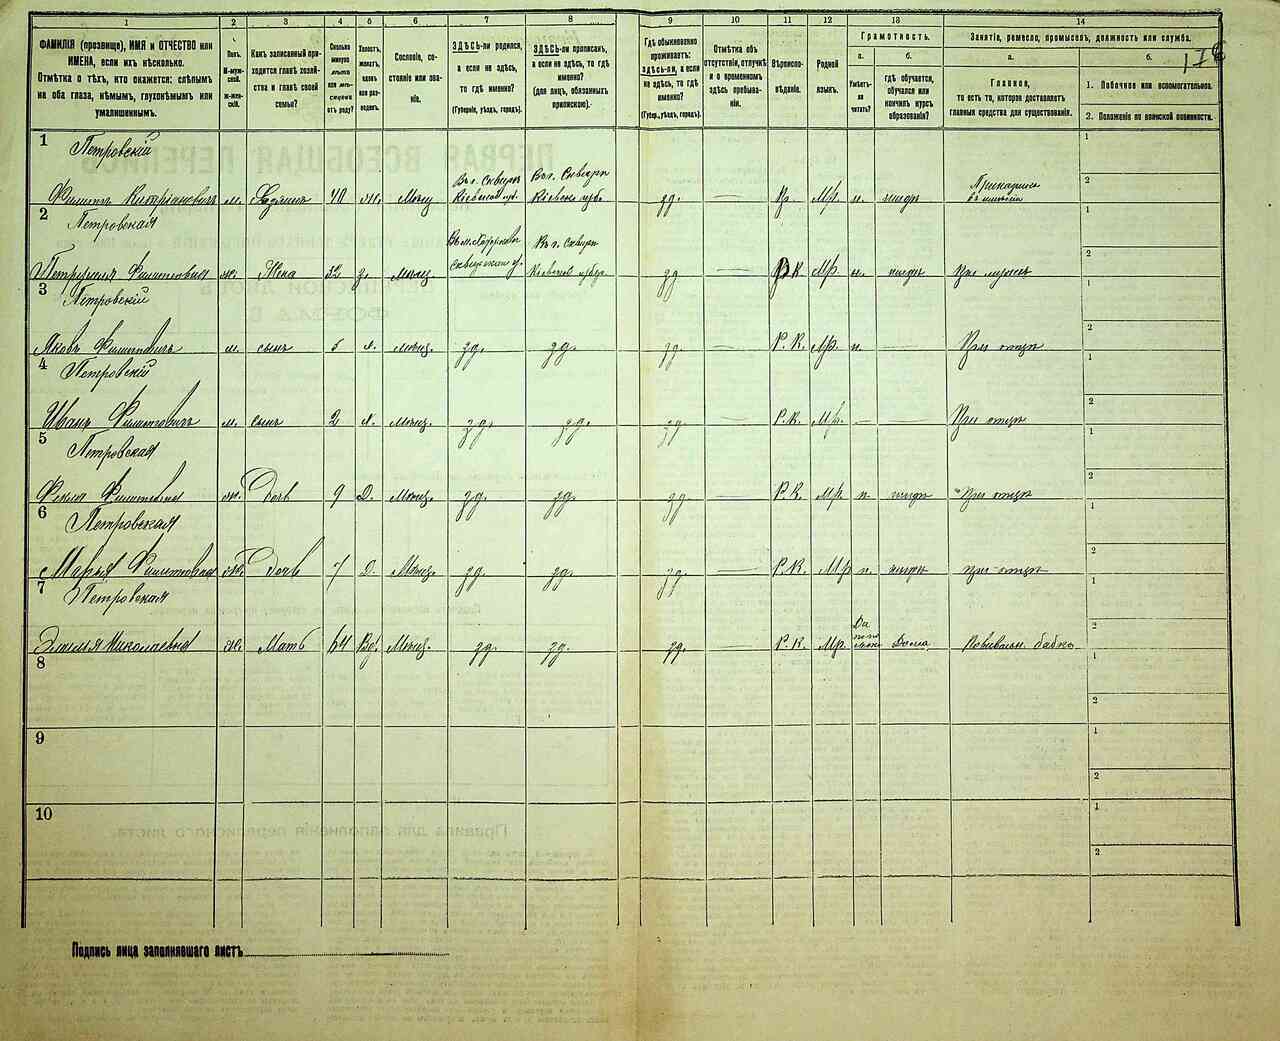 1 2 3 4 5 6 7 8 9 10 11 12 13 14
ФАМИЛІЯ (прозвище), ИМЯ и ОТЧЕСТВО или
ИМЕНА, если ихъ нѣсколько.
Отмѣтка о тѣхъ, кто окажется: слѣпымъ
на оба глаза, нѣмымъ, глухонѣмымъ или
умалишеннымъ.
Полъ.
М-муж-
ской.
Ж-жен-
скій.
Какъ записанный при-
ходится главѣ хозяй-
ства и главѣ своей
семьи?
Сколько
минуло
лѣтъ
или мѣ-
сяцевъ
отъ роду?
Холостъ,
женатъ,
вдовъ
или раз-
веденъ.
Сословіе, со-
стояніе или зва-
ніе.
ЗДѢСЬ-ли родился,
а если не здѣсь,
то гдѣ именно?
(Губернія, уѣздъ, городъ).
ЗДѢСЬ-ли приписанъ,
а если не здѣсь, то гдѣ
именно?
(для лицъ, обязанныхъ
припискою).
Гдѣ обыкновенно
проживаетъ:
здѣсь-ли, а если
не здѣсь, то гдѣ
именно?
(Губер., уѣздъ, городъ).
Отмѣтка объ
отсутствіи, отлучкѣ
и о временномъ
здѣсь пребыва-
ніи.
Вѣроиспо-
вѣданіе.
Родной
языкъ.
Грамотность.
а. б.
Умѣетъ-
ли
читать?
гдѣ обучается,
обучался или
кончилъ курсъ
образованія?
Занятіе, ремесло, промыселъ, должность или служба.
а. б.
Главное,
то есть то, которое доставляетъ
главныя средства для существованія.
1. Побочное или вспомогательное.
2. Положеніе по воинской повинности.
176
1 Петровскій
Филиппъ м. Хозяинъ 40 ж. Мѣщ. Въ г. Сквирѣ Въ г. Сквирѣ зд. — Мр. н. нигдѣ
2 Петровская
ж. Жена 32 з. Мѣщ. Въ г. Сквирѣ зд — Р.К. Мр. н. нигдѣ При мужѣ
3 Петровскій
Яковъ Филипповичъ м. сынъ 5 х. мѣщ. зд. зд. зд. — Р. К. Мр. н. — При отцѣ
4 Петровскій
Иванъ Филипповичъ м. сынъ 2 х. мѣщ. зд. зд. зд. — Р.К. Мр. — — При отцѣ
5 Петровская
Фекла Филипповна ж. Дочь 9 Д. Мѣщ. зд. зд. зд. — Р. К. Мр н. нигдѣ При отцѣ
6 Петровская
Марья Филипповна ж. Дочь 7 Д. Мѣщ. зд. зд. зд. — Р.К. Мр н. нигдѣ при отцѣ
7 Петровская
Эмилія Николаевна ж. Мать 64 Вд. Мѣщ. зд. зд. зд. — Р. К. Мр. Да Дома Повивальн. бабка
8
9
10
Подпись лица заполнявшаго листъ